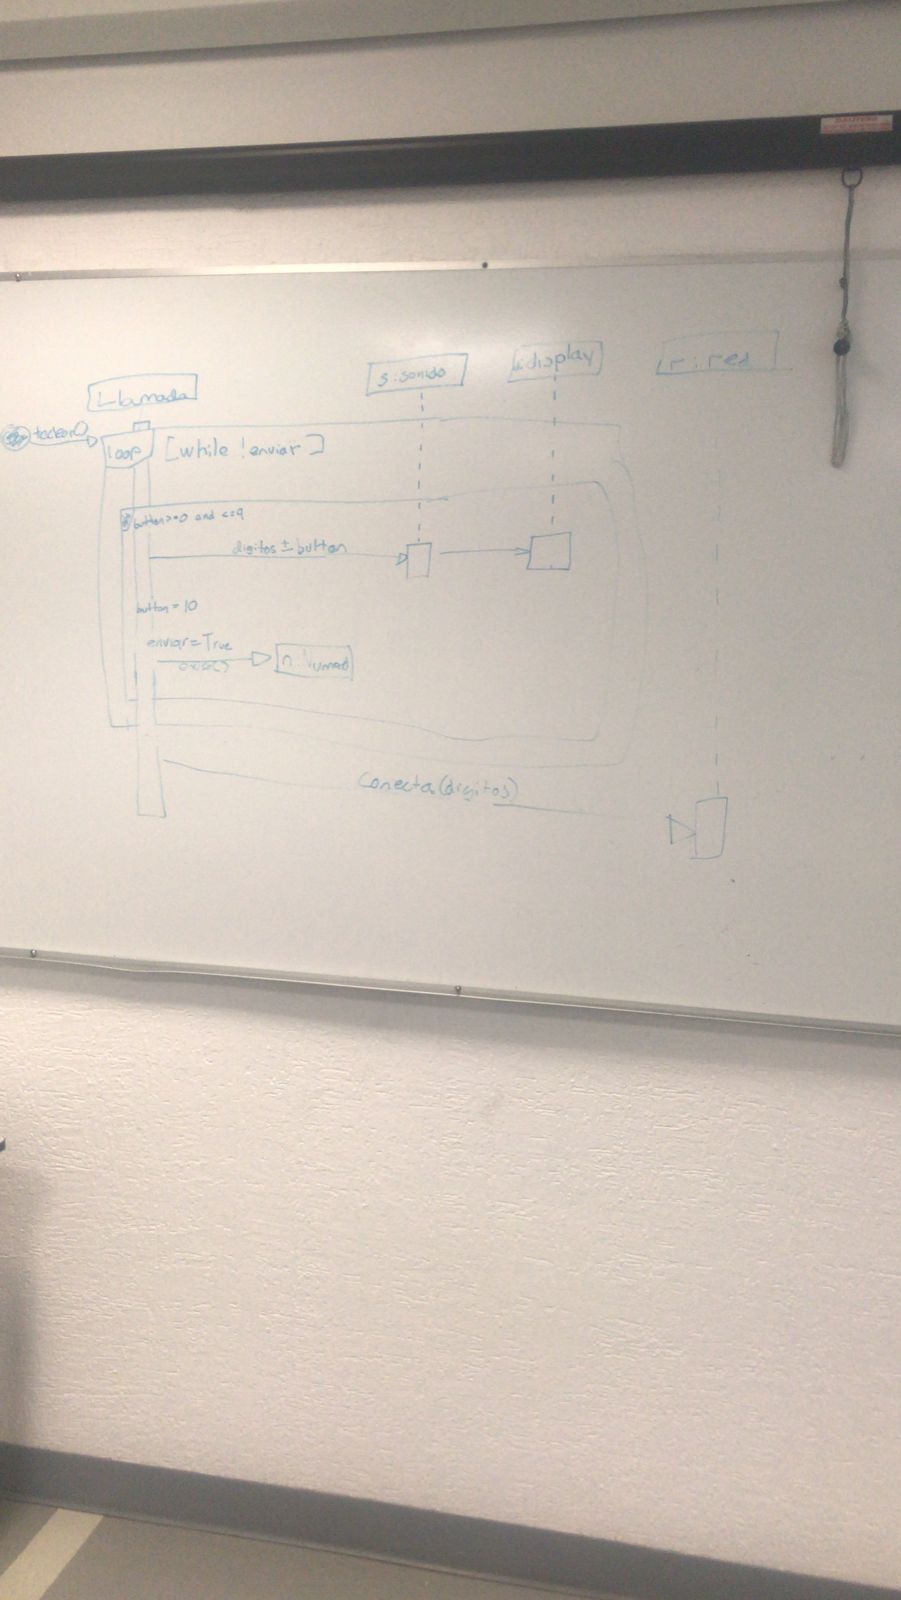 Llamada
s:sonido
:display
r:red
teclear()
loop
[while !enviar]
button>=0 and <=9
digitos ± button
button = 10
enviar=True
n:Numad
Conecta(digitos)